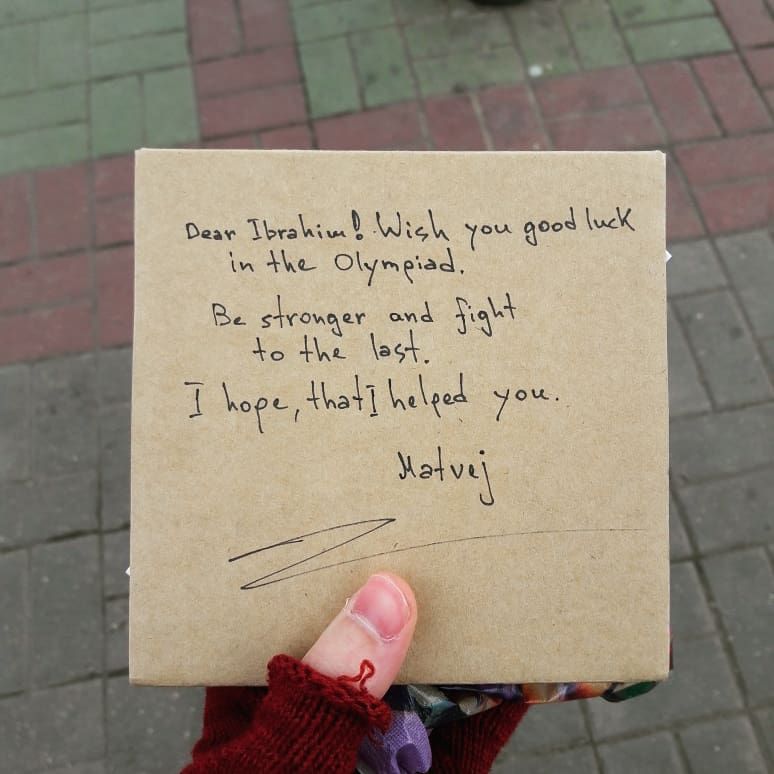 Dear Ibrahim! Wish you good luck
in the Olympiad.
Be stronger and fight
to the last.
I hope, that I helped you.
Matvej